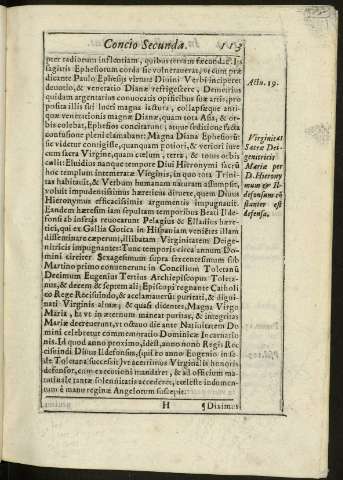 Concio Secunda. 113
per radiorum influentiam, quibus terram fœcundat. Ita
sagittis Ephesiorum corda sic vulnerauerat, vt cum præ
dicante Paulo Ephesijs virtute Diuini Verbi inciperet
deuotio, & veneratio Dianæ refrigescere, Demetrius
quidam argentarius conuocatis opificibus suæ artis, pro
posita illis sui lucri magna iactura, collapsæque anti-
quæ venerationis magnæ Dianæ, quam tota Asia, & or-
bis colebat, Ephesios concitarunt, atque seditione facta
confusione pleni clamabant: Magna Diana Ephesiorũ
sic videtur contigisse, quanquam potiori, & veriori iure
cum sacra Virgine, quam cœlum, terra, & totus orbis
colit: Eluidius nanque tempore Diui Hieronymi sacrũ
hoc templum intemeratæ Virginis, in quo tota Trini-
tas habitauit, & Verbum humanam naturam assumpsit,
voluit impudentissimus hæreticus diruere, quem Diuus
Hieronymus efficacissimis argumentis impugnauit.
Eandem hæresim iam sepultam temporibus Beati Ilde
fonsi ab inferis reuocarunt Pelagius & Elladius hære-
tici, qui ex Gallia Gotica in Hispaniam venientes illam
disseminare cæperunt, illibatam Virginitatem Deige-
nitricis impugnantes: Tunc temporis circa annum Do-
mini circiter Sexagesimum supra sexcentesimum sub
Martino primo conuenerunt in Concilium Toletanũ
Decimum Eugenius Tertius Archiepiscopus Toleta
nus, & decem & septem alij Episcopi regnante Catholi
co Rege Recisuindo, & acclamauerunt puritati, & digni-
tati Virginis almæ; & quasi dicentes, Magna Virgo
Maria, ha vt in æternum maneat puritas, & integritas
Mariæ decreuerunt, vt octauo die ante Natiuitatem Do
mini celebretur commemoratio Dominicæ Incarnatio
nis. Id quod anno proximo, idest, anno nono Regis Re
cisuindi Diuus Ildefonsus, (qui eo anno Eugenio in se-
de Toletana successit) vt acerrimus Virginalis honoris
defensor, cum executioni mandaret, & ad officium ma-
tutinale tantæ solennitatis accederet, cœleste indumen-
tum è manu reginæ Angelorum suscepit.
H ¶ Diximus
Actu. 19.
Virginitas
Sacræ Dei-
genitricis
Mariæ per
D. Hierony
mum & Il-
defonsum cõ
stanter est
defensa.